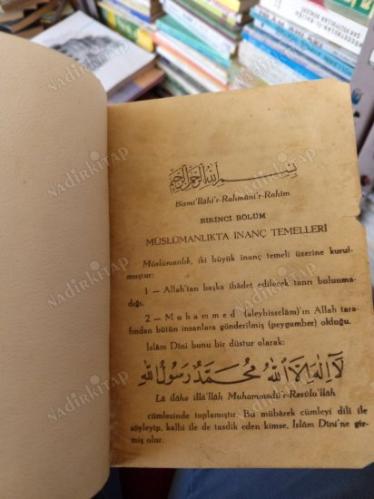 بسم الله الرحمن الرحيم
Bismi'llâhi'r-Rahmâni'r-Rahîm
BİRİNCİ BÖLÜM
MÜSLÜMANLIKTA İNANÇ TEMELLERİ
Müslümanlık, iki büyük inanç temeli üzerine kurul-
muştur:
1 — Allah'tan başka ibâdet edilecek tanrı bulunma-
dığı.
2 — Muhammed (aleyhisselâm)'ın Allah tara-
fından bütün insanlara gönderilmiş (peygamber) olduğu.
İslâm Dîni bunu bir düstur olarak:
لا إله إلا الله محمد رسول الله
Lâ ilâhe illâ'llah Muhammedü'r-Resûlu'llah
cümlesinde toplamıştır. Bu mübârek cümleyi dili ile
söyleyip, kalbi ile de tasdik eden kimse, İslâm Dîni'ne gir-
miş olur.
nadirkitap
nadirkitap
nadirkitap
nadirkitap